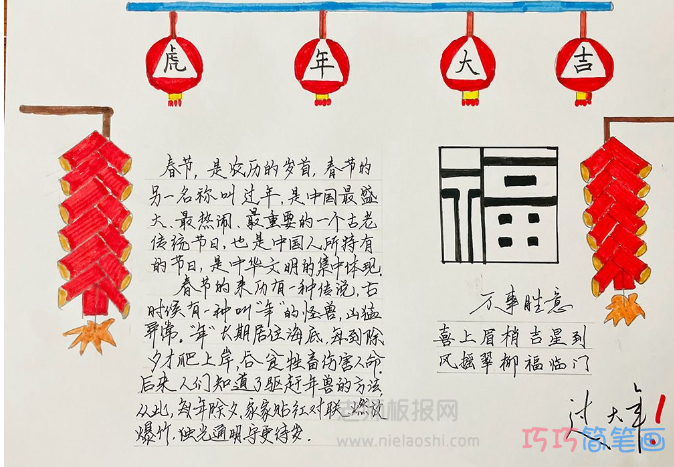 虎年大吉
春节，是农历的岁首，春节的
另一名称叫过年，是中国最盛
大、最热闹、最重要的一个古老
传统节日，也是中国人所特有
的节日，是中华文明的集中体现。
春节的来历有一种传说，古
时候有一种叫“年”的怪兽，凶猛
异常，“年”长期居住海底，每到除
夕才爬上岸，吞食牲畜伤害人命。
后来人们知道了驱赶年兽的方法
从此，每年除夕，家家贴红对联、燃放
爆竹，烛光通明守更待岁。
福
万事胜意
喜上眉梢吉星到
风摇翠柳福临门
过大年！
老师板报网
www.nielaoshi.com
巧巧简笔画